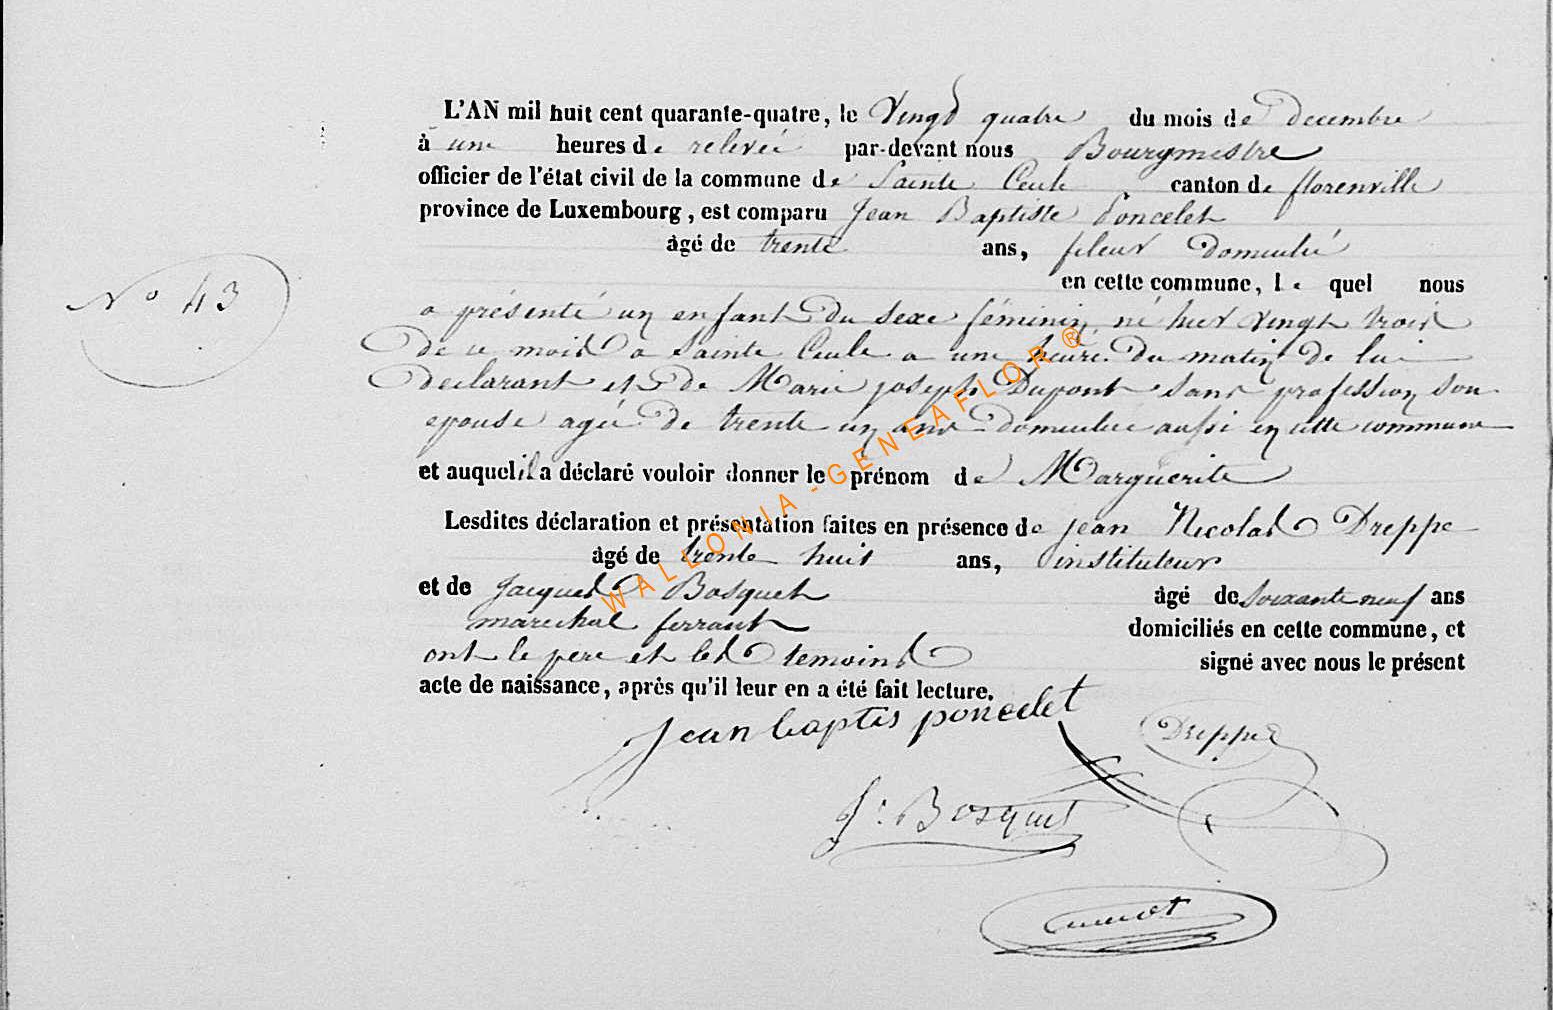 L'AN mil huit cent quarante-quatre, le Vingt quatre du mois de decembre
à une heures de relevée par-devant nous Bourgmestre
officier de l'état civil de la commune de Sainte Cecile, canton de florenville
province de Luxembourg, est comparu Jean Baptiste Poncelet
âgé de trente ans, fileur domicilié
en cette commune, le quel nous
N° 43
a présenté un enfant du sexe féminin, né hier vingt trois
de ce mois a Sainte Cecile a une heure du matin de lui
declarant et de Marie joseph Dupont sans profession son
epouse agée de trente un ans domiciliee aussi en cette commune
et auquel il a déclaré vouloir donner le prénom de Marguerite
Lesdites déclaration et présentation faites en présence de jean Nicolas Dreppe
âgé de trente huit ans, instituteur
et de Jacques Bosquet âgé de Soixante neuf ans
marechal ferrant domiciliés en cette commune, et
ont le pere et les temoins signé avec nous le présent
acte de naissance, après qu'il leur en a été fait lecture.
Jean baptis poncelet
Dreppe
J: Bosquet
WALLONIA-GENEAFLOR®